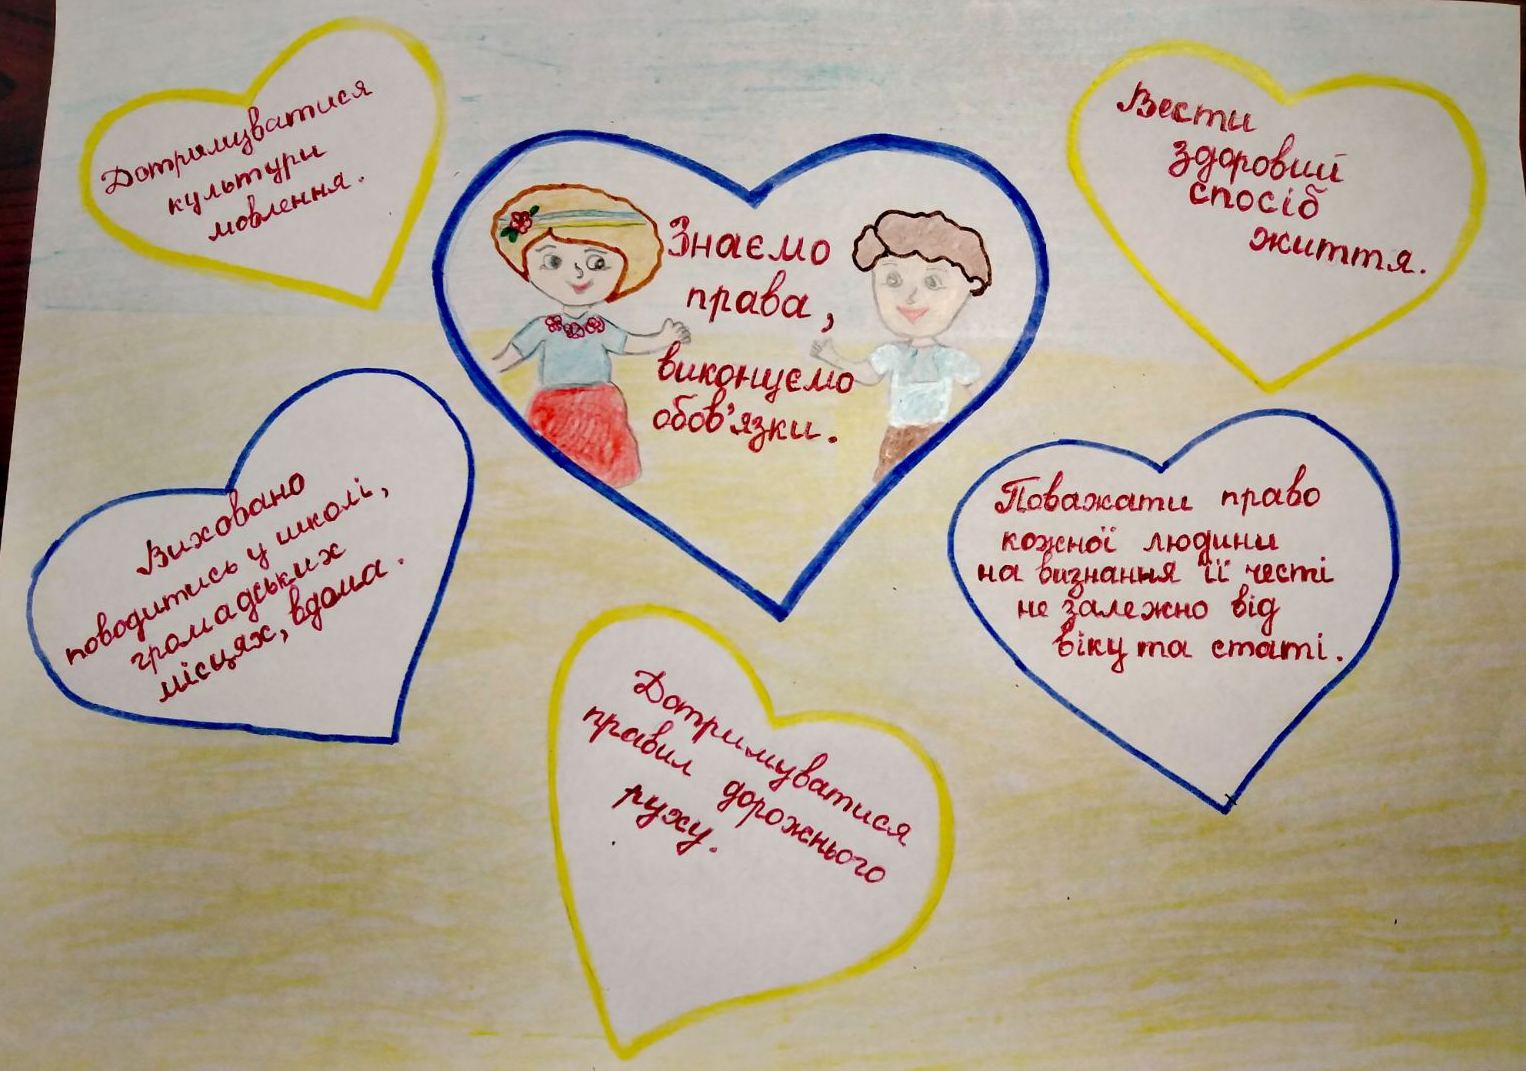 Дотримуватися
культури
мовлення.
Знаємо
права,
виконуємо
обов'язки.
Вести
здоровий
спосіб
життя.
Виховано
поводитись у школі,
громадських
місцях, вдома.
Поважати право
кожної людини
на визнання її честі
не залежно від
віку та статі.
Дотримуватися
правил дорожнього
руху.